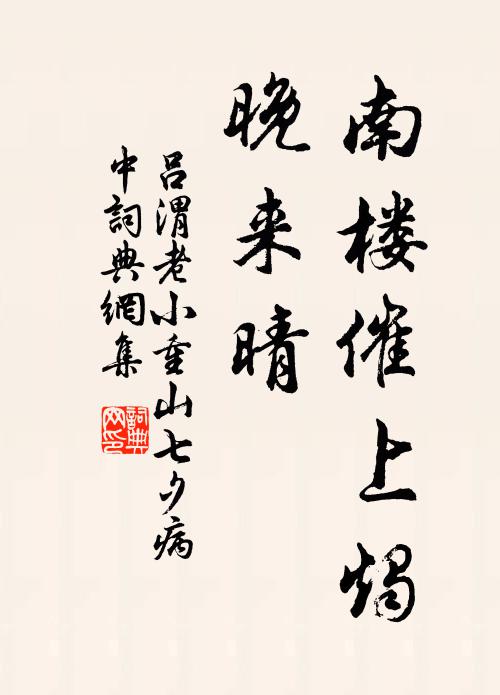 南楼催上烛
晚来晴
吕渭老小重山七夕病
中詞典網集
詞典网印